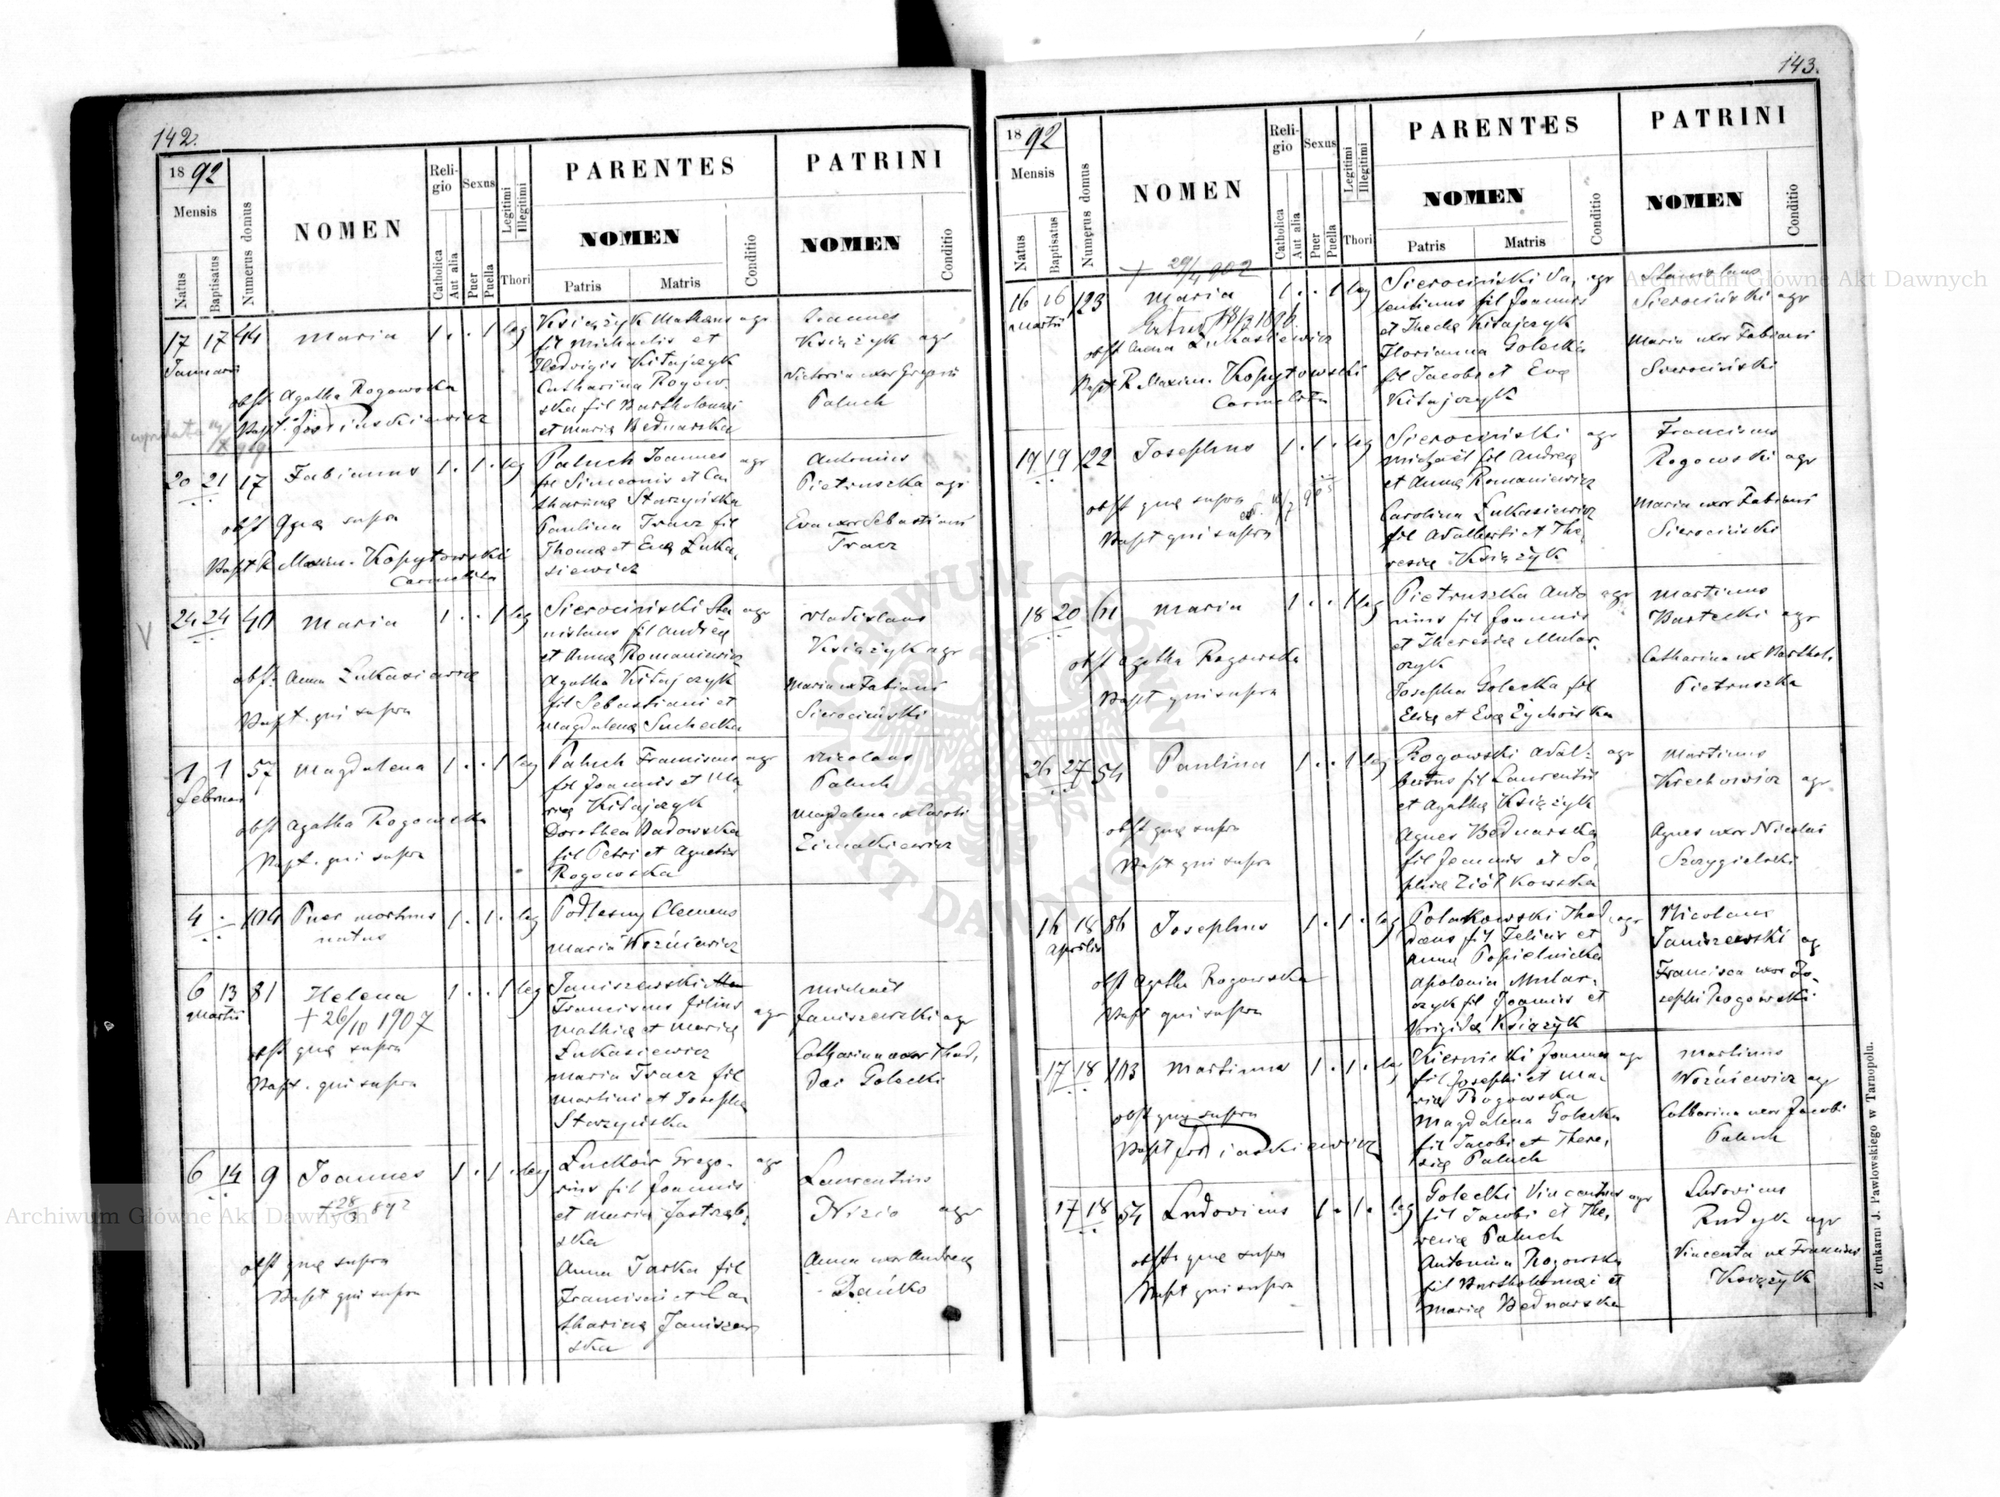 142.
18 92
Mensis
Natus
Baptisatus
Numerus domus
NOMEN
Religio
Catholica
Aut alia
Sexus
Puer
Puella
Legitimi
Illegitimi
Thori
PARENTES
NOMEN
Patris
Matris
Conditio
PATRINI
NOMEN
Conditio
17 17 44 Maria 1 . . 1 leg
Januarii
obst Agatha Rogowska
Książyk Mathaeus agr
fil Michaelis et
Hedvigis Kitajczyk
Catharina Rogow-
ska fil Bartholomaei
et Maria Bednarska
Joannes
Książyk agr
Victoria uxor Gregorii
Paluch
20 21 17 Fabianus 1 . 1 . leg
obst quae supra
Bapt R Maxim. Kopytowski
Carmelita
Paluch Joannes agr
fil Simeonis et Ca
tharina Starzyńska
Paulina Tracz fil
Thoma et Eva Łuka
siewicz
Antonius
Pietruszka agr
Eva uxor Sebastiani
Tracz
24 24 40 Maria 1 . . 1 leg
obst. Anna Łukasiewicz
Bapt. qui supra
Sierociński Sta agr
nislaus fil Andreae
et Anna Romaniewicz
Agatha Kitajczyk
fil Sebastiani et
Magdalena Suchecka
Vladislaus
Książyk agr
Maria ux Fabiani
Sierociński
1 1 57 Magdalena 1 . . 1 leg
Februarii
obst Agatha Rogowska
Bapt. qui supra
Paluch Franciscus agr
fil Joannis et Ma
ria Kitajczyk
Dorothea Badowska
fil Petri et Agnetis
Rogowska
Nicolaus
Paluch
Magdalena ux Caroli
4 . 104 Puer mortuus 1 . 1 . leg
natus
Podlesny Clemens
Maria Woźniewicz
6 13 81 Helena 1 . . 1 leg
Martii
+ 26/10 1907
obst quae supra
Bapt. qui supra
Janiszewski
Franciscus filius agr
Mathiae et Maria
Łukasiewicz
Maria Tracz fil
Martini et Josepha
Starzyńska
Michaël
Janiszewski agr
Catharina uxor Thad,
daei Golecki
6 14 9 Joannes 1 . 1 . leg
+ 28/3 892
obst quae supra
Bapt qui supra
Grego- agr
rius fil Joannis
et Maria Jastrzęb-
ska
Anna Jarka fil
Francisci et Ca
tharina Janiszew
ska
Laurentius
Nizio agr
Anna uxor Andreae
Dańko
143.
18 92
Mensis
Natus
Baptisatus
Numerus domus
NOMEN
Religio
Catholica
Aut alia
Sexus
Puer
Puella
Legitimi
Illegitimi
Thori
PARENTES
NOMEN
Patris
Matris
Conditio
PATRINI
NOMEN
Conditio
+ 29/4 902
16 16 123 Maria 1 . . 1 leg
Martii
obst Anna Łukasiewicz
Bapt R Maxim. Kopytowski
Carmelita
Sierociński Va, agr
lentinus fil Joannis
et Thecla Kitajczyk
Florianna Golecka
fil Jacobi et Eva
Kitajczyk
Stanislaus
Sierociński agr
Maria uxor Fabiani
Sierociński
19 19 122 Josephus 1 . 1 . leg
obst quae supra
Bapt qui supra
Sierociński agr
Michaël fil Andreae
et Anna Romaniewicz
Carolina Łukasiewicz
fil Adalberti et The
resia Książyk
Franciscus
Rogowski agr
Maria uxor Fabiani
Sierociński
18 20 61 Maria 1 . . 1 leg
obst Agatha Rogowska
Bapt qui supra
Pietruszka Anto agr
nius fil Joannis
et Theresia Mular-
czyk
Josepha Golecka fil
Elia et Eva Zychorska
Martinus
Bartecki agr
Catharina ux Barthol.
Pietruszka
26 27 54 Paulina 1 . . 1 leg
obst quae supra
Bapt qui supra
Rogowski Adal- agr
bertus fil Laurentii
et Agatha Książyk
Agnes Bednarska
fil Joannis et So,
phia Ziółkowska
Martinus
Krechowicz agr
Agnes uxor Nicolai
Szczygielski
16 18 86 Josephus 1 . 1 . leg
Aprilis
obst Agatha Rogowska
Bapt qui supra
Polakowski Thad, agr
daeus fil Felicis et
Anna Popielnicka
Apolonia Mular-
czyk fil Joannis et
Brigida Książyk
Nicolaus
Janiszewski ag
Francisca uxor Jo-
sephi Rogowski
17 18 103 Martinus 1 . 1 . leg
obst quae supra
Kiernicki Joannes agr
fil Josephi et Ma-
ria Rogowska
Magdalena Golecka
fil Jacobi et There,
sia Paluch
Martinus
Woźniewicz agr
Catharina uxor Jacobi
Paluch
17 18 54 Ludovicus 1 . 1 . leg
obst quae supra
Bapt qui supra
Golecki Vincentius agr
fil Jacobi et The,
resia Paluch
Antonina Rogowska
fil Bartholomaei et
Maria Bednarska
Ludovicus
Rudyk agr
Vincenta ux Francisci
Książyk
Z drukarni J. Pawłowskiego w Tarnopolu.
Archiwum Główne Akt Dawnych
Archiwum Główne Akt Dawnych
ARCHIWUM GŁÓWNE AKT DAWNYCH